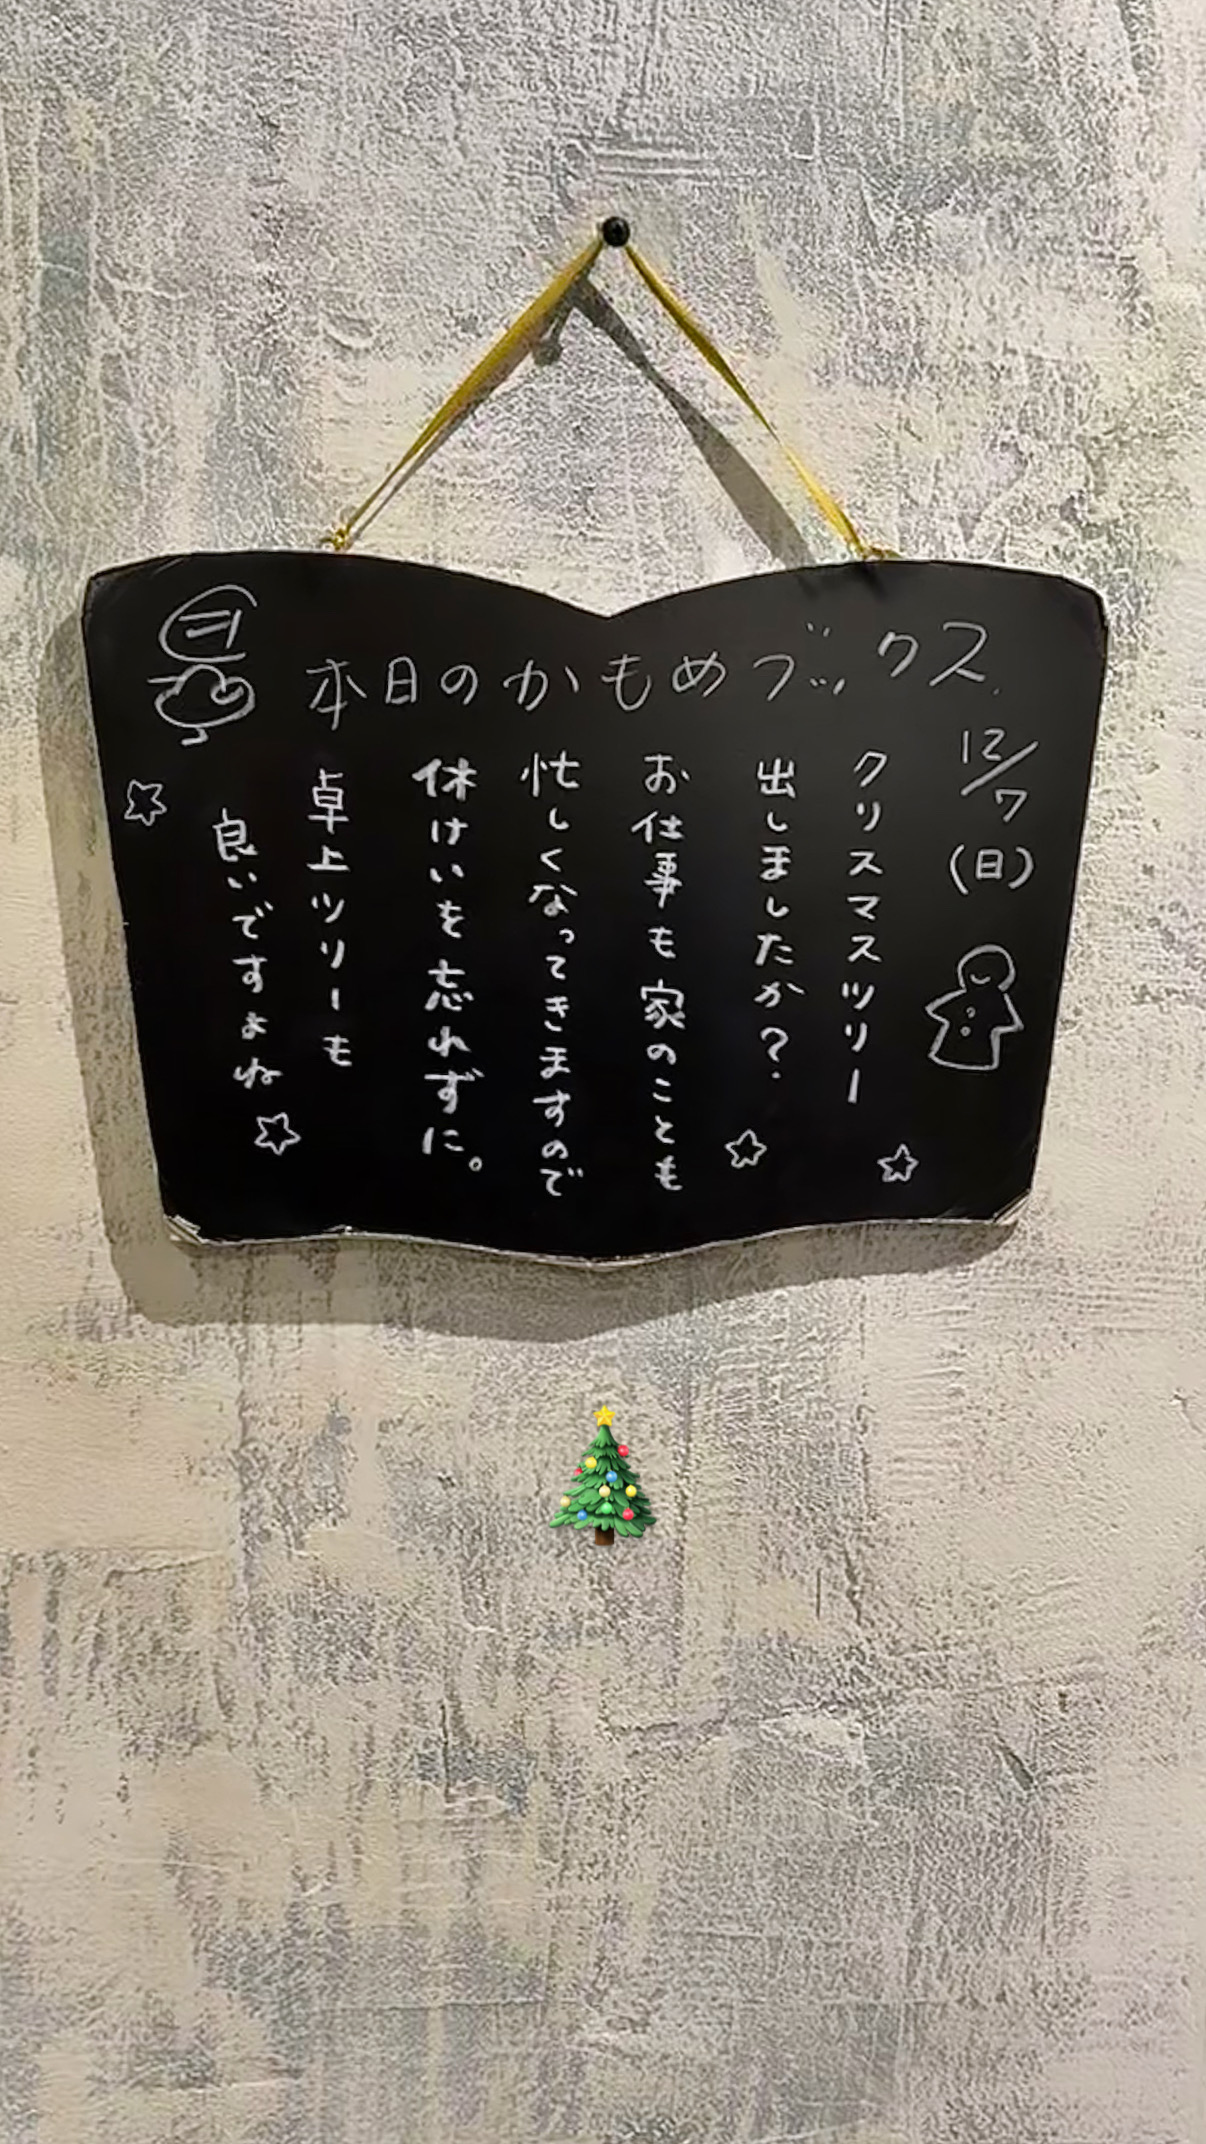 本日のかもめブックス
12/7
(日)
クリスマスツリー
出しましたか?
お仕事も家のことも
忙しくなってきますので
休けいを忘れずに。
卓上ツリーも
良いですよね